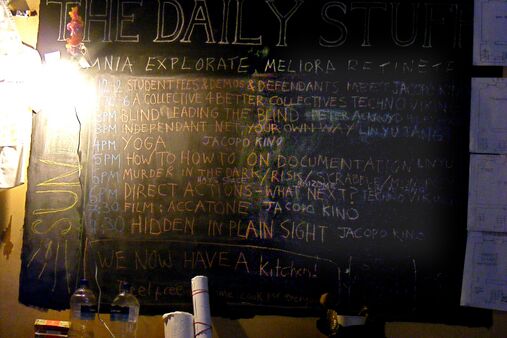 THE DAILY STUFF
OMNIA EXPLORATE, MELIORA RETINETE
12 STUDENT FEES & DEMOS & DEFENDANTS JACOPO KINO
A COLLECTIVE 4 BETTER COLLECTIVES TECHNO VIKING
3PM BLIND LEADING THE BLIND PETER
3PM INDEPENDANT NET, YOUR OWN WAY LINYU
4PM YOGA JACOPO KINO
5PM HOW TO HOW TO ON DOCUMENTATION LINYU
5PM MURDER IN THE DARK/RISK/SCRABBLE/
5PM DIRECT ACTIONS - WHAT NEXT? TECHNO VIKING
:30 FILM: ACCATONE - JACOPO KINO
:30 HIDDEN IN PLAIN SIGHT JACOPO KINO
SUN
WE NOW HAVE A Kitchen!
feel free